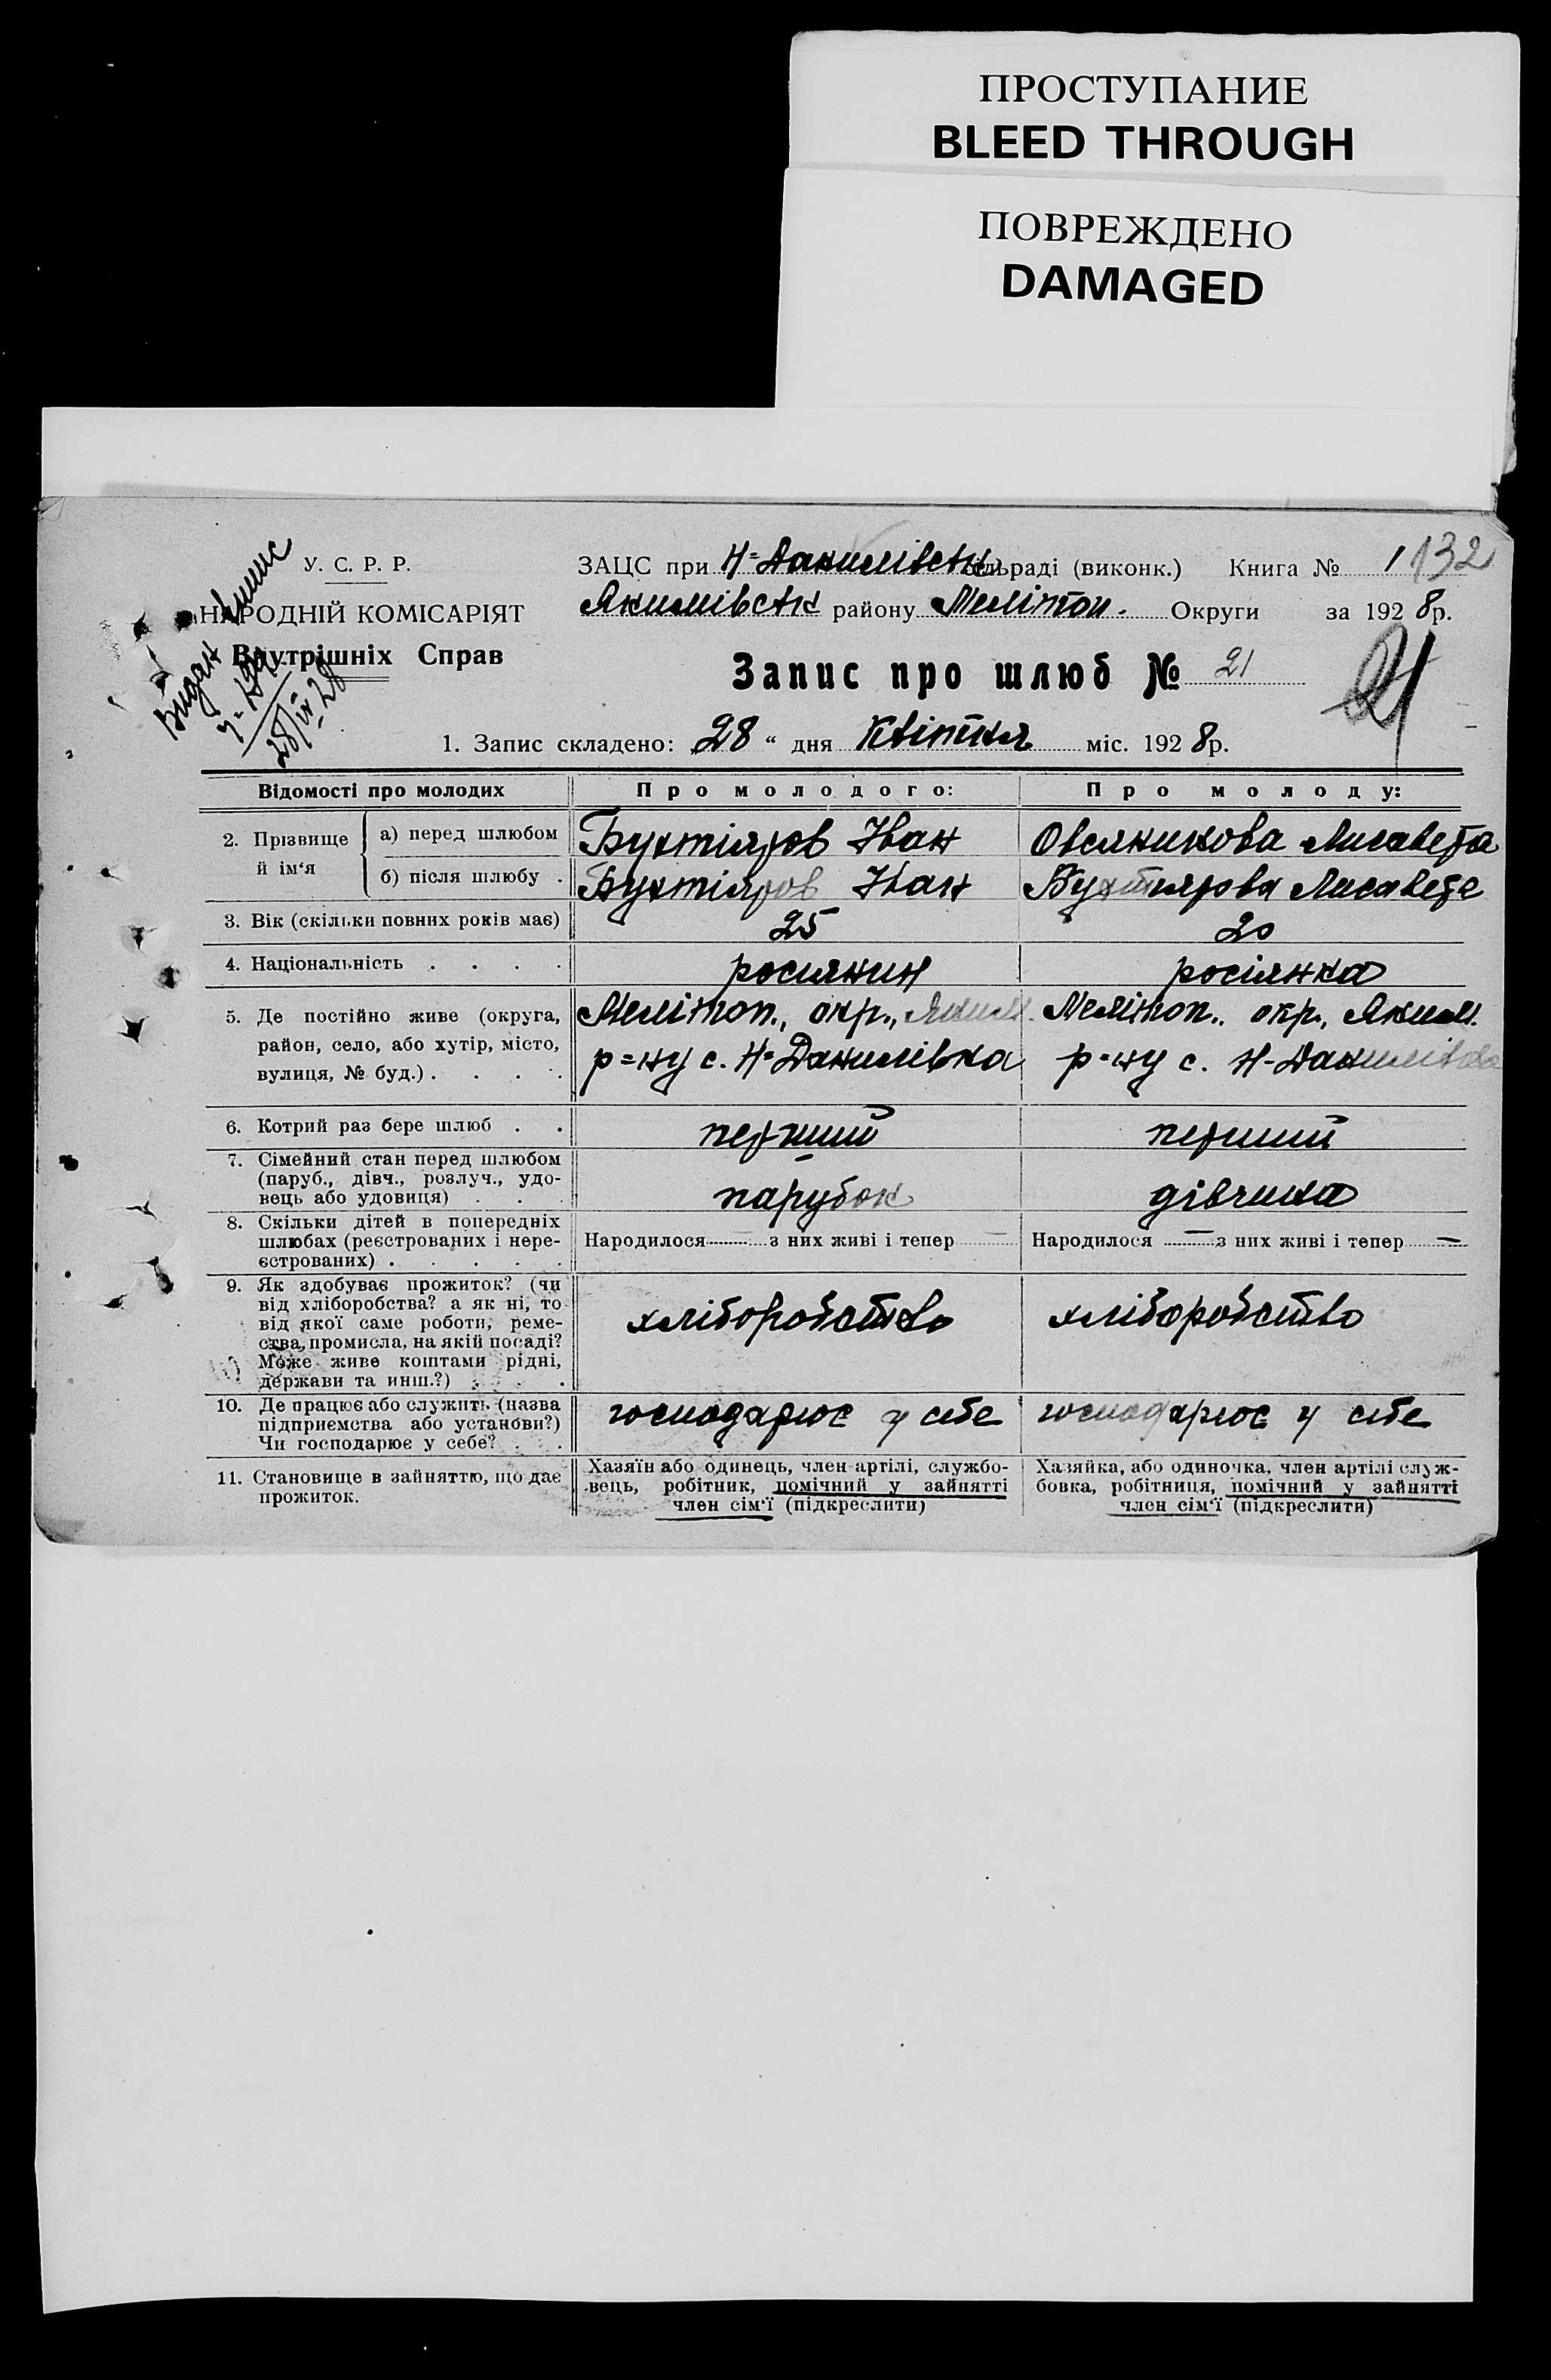 ПРОСТУПАНИЕ
BLEED THROUGH
ПОВРЕЖДЕНО
DAMAGED
У. С. Р. Р.
НАРОДНІЙ КОМІСАРІЯТ
Внутрішніх Справ
Видан
28/IV 28
ЗАЦС при Н=Данилівськ сільраді (виконк.) Книга № 1 132
Якимівськ району Мелітоп. Округи за 1928р.
Запис про шлюб № 21
21
1. Запис складено: 28 “ дня Квітня міс. 1928р.
Відомості про молодих Про молодого: Про молоду:
2. Прізвище й ім‘я
а) перед шлюбом Бухтіяров Іван Овсяникова Лисавета
б) після шлюбу . Бухтіяров Іван Бухтиярова Лисавета
3. Вік (скільки повних років має) 25 20
4. Національність . . . . росиянин росіянка
5. Де постійно живе (округа, Мелітоп., окр., Яким. Мелітоп.. окр., Яким.
район, село, або хутір, місто, р=ну с. Н=Данилівка р-ну с. Н-Данилівка
вулиця, № буд.) . . . .
6. Котрий раз бере шлюб . . перший перший
7. Сімейний стан перед шлюбом
(паруб., дівч., розлуч., удо-
вець або удовиця) . . . парубок дівчина
8. Скільки дітей в попередніх
шлюбах (реєстрованих і нере- Народилося — з них живі і тепер — Народилося — з них живі і тепер —
єстрованих) . . . . .
9. Як здобуває прожиток? (чи
від хліборобства? а як ні, то
від якої саме роботи, реме- хліборобство хліборобство
ства, промисла, на якій посаді?
Може живе коштами рідні,
держави та инш.?) . . .
10. Де працює або служить (назва господарює у себе господарює у себе
підприємства або установи?)
Чи господарює у себе? . .
11. Становище в зайняттю, що дає
прожиток.
Хазяїн або одинець, член артілі, службо-
вець, робітник, помічний у зайнятті
член сім‘ї (підкреслити)
Хазяйка, або одиночка, член артілі служ-
бовка, робітниця, помічний у зайнятті
член сім‘ї (підкреслити)